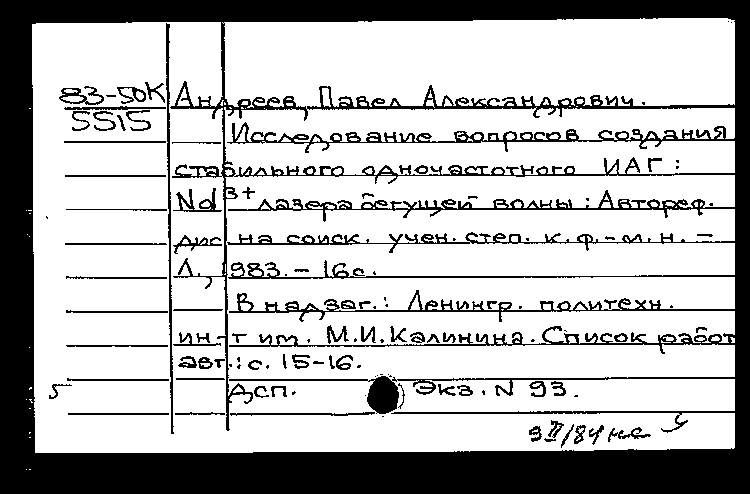 83-50К Андреев, Павел Александрович.
5515
Исследование вопросов создания
стабильного одночастотного ИАГ:
Nd3+ лазера бегущей волны: Автореф.
дис на соиск. учен. степ. к.ф.-м.н. -
Л., 1983. - 16с.
В надзаг.: Ленингр. политехн.
ин-т им. М.И.Калинина. Список работ
авт.: с. 15-16.
5 Дсп. Экз. N 93.
9 II/84